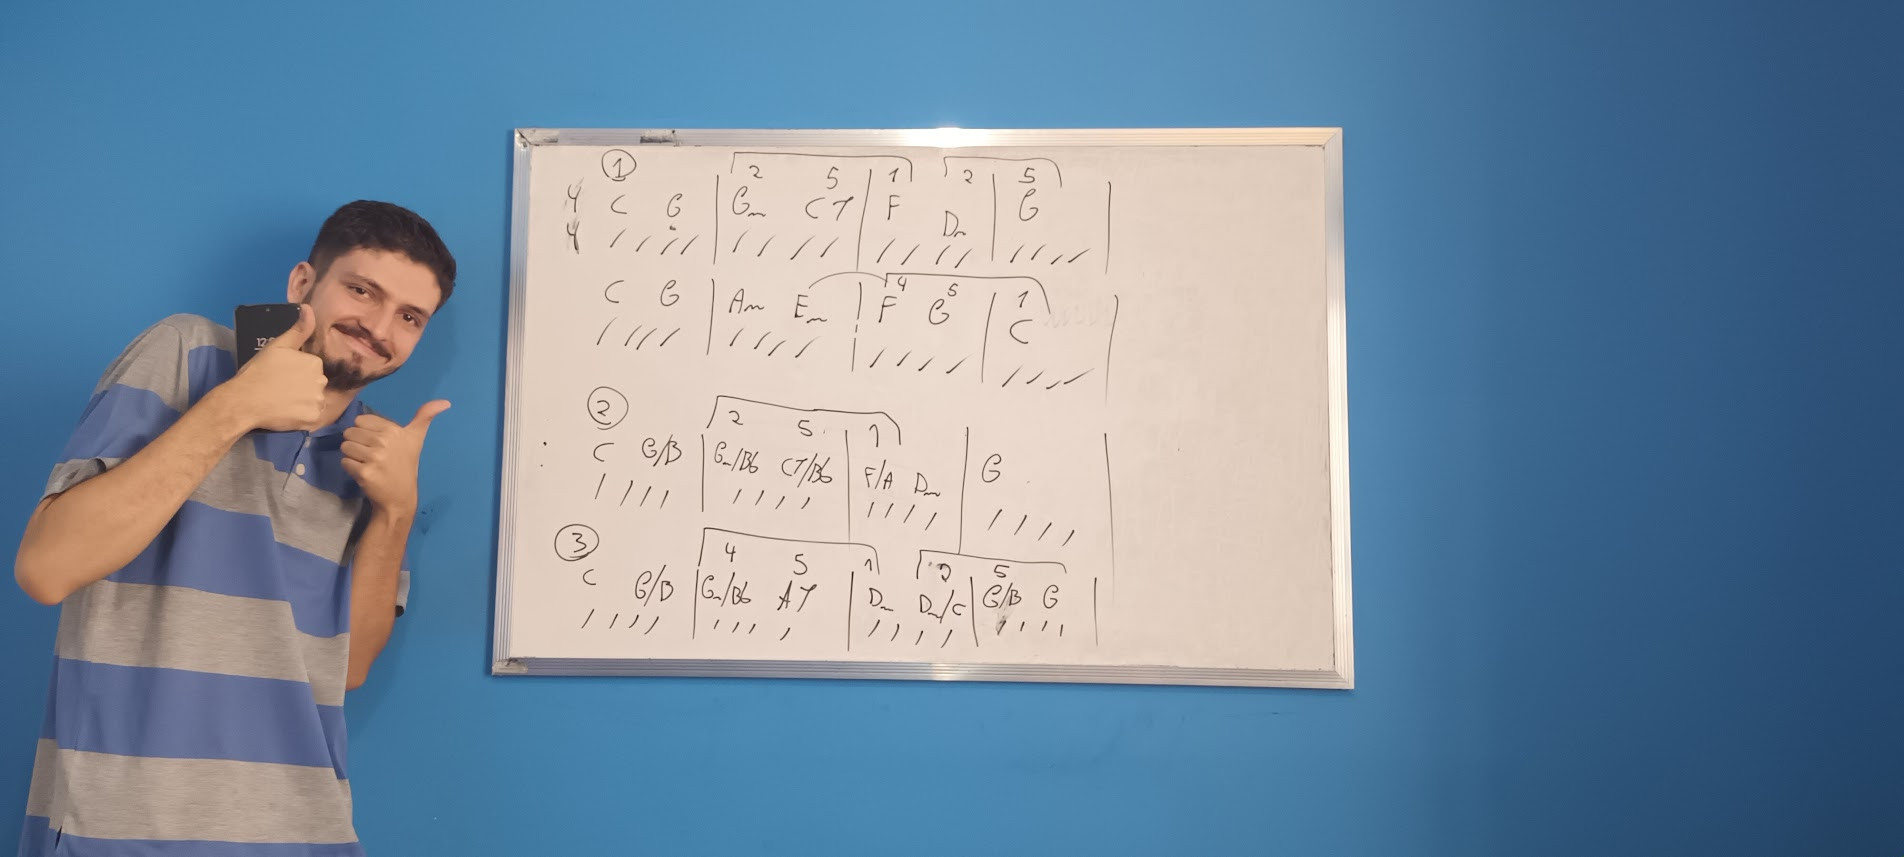 ①
2 5 1 2 5
4/4 C G | Gm C7 | F Dm | G |
/ / / / | / / / / | / / / / | / / / / |
4 5 1
C G | Am Em | F G | C |
/ / / / | / / / / | / / / / | / / / / |
②
2 5 1
: C G/B | Gm/Bb C7/Bb | F/A Dm | G |
/ / / / | / / / / | / / / / | / / / / |
③
4 5 1 2 5
C G/B | Gm/Bb A7 | Dm Dm/C | G/B G |
/ / / / | / / / / | / / / / | / / / / |